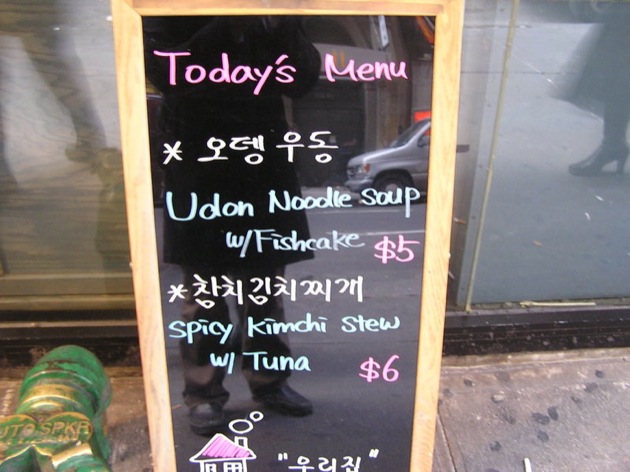 Today's Menu
* 오뎅우동
Udon Noodle Soup
w/Fishcake $5
* 참치김치찌개
Spicy Kimchi Stew
w/ Tuna $6
"우리집"
AUTO SPKR